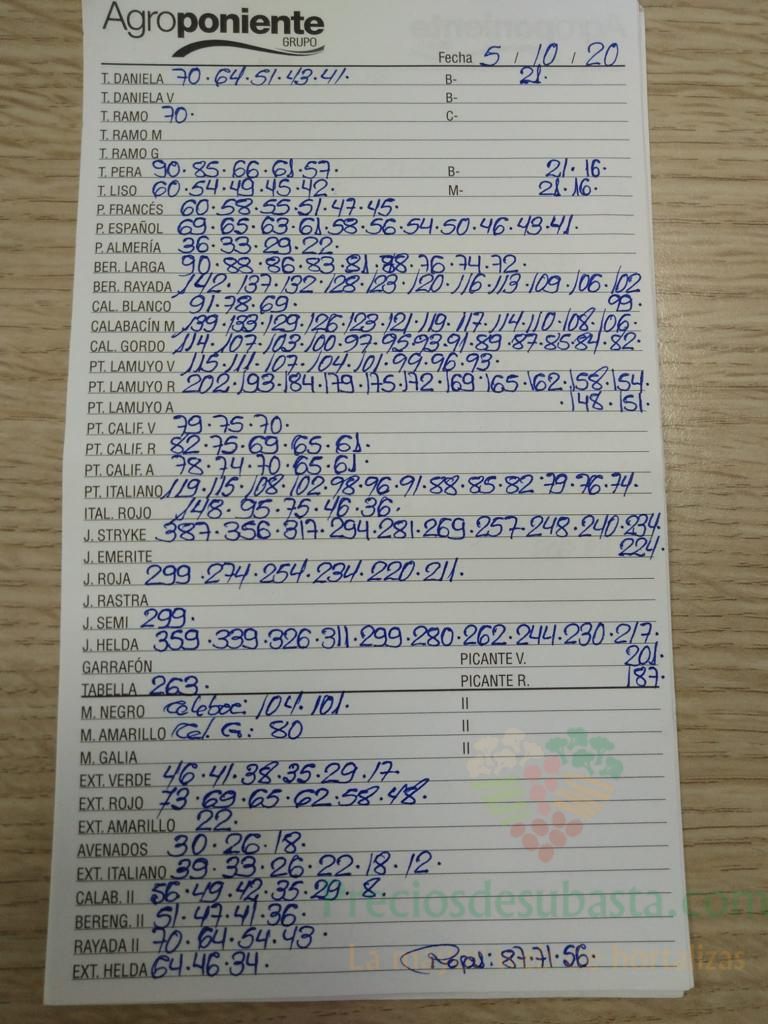 Agroponiente
GRUPO
Fecha 5 / 10 / 20
T. DANIELA 70·64·51·43·41· B- 21·
T. DANIELA V B-
T. RAMO 70· C-
T. RAMO M
T. RAMO G
T. PERA 90·85·66·61·57· B- 21·16·
T. LISO 60·54·49·45·42· M- 21·16·
P. FRANCÉS 60·58·55·51·47·45·
P. ESPAÑOL 69·65·63·61·58·56·54·50·46·43·41·
P. ALMERÍA 36·33·29·22·
BER. LARGA 90·88·86·83·81·78·76·74·72·
BER. RAYADA 142·137·132·128·123·120·116·113·109·106·102
CAL. BLANCO 91·78·69· 99·
CALABACÍN M 139·133·129·126·123·121·119·117·114·110·108·106·
CAL. GORDO 114·107·103·100·97·95·93·91·89·87·85·84·82·
PT. LAMUYO V 115·111·107·104·101·99·96·93·
PT. LAMUYO R 202·193·184·179·175·172·169·165·162·158·154·
PT. LAMUYO A ·148·151·
PT. CALIF. V 79·75·70·
PT. CALIF. R 82·75·69·65·61·
PT. CALIF. A 78·74·70·65·61·
PT. ITALIANO 119·115·108·102·98·96·91·88·85·82·79·76·74·
ITAL. ROJO 148·95·75·46·36·
J. STRYKE 387·356·317·294·281·269·257·248·240·234
J. EMERITE 224·
J. ROJA 299·274·254·234·220·211·
J. RASTRA
J. SEMI 299·
J. HELDA 359·339·326·311·299·280·262·244·230·217·
GARRAFÓN PICANTE V. 201·
TABELLA 263· PICANTE R. 187·
M. NEGRO 104·101· II
M. AMARILLO Cal. G: 80 II
M. GALIA II
EXT. VERDE 46·41·38·35·29·17·
EXT. ROJO 73·69·65·62·58·48·
EXT. AMARILLO 22·
AVENADOS 30·26·18·
EXT. ITALIANO 39·33·26·22·18·12·
CALAB. II 56·49·42·35·29·8·
Preciosdesubasta.com
BERENG. II 51·47·41·36·
RAYADA II 70·64·54·43·
EXT. HELDA 64·46·34· 87·71·56·
La hortalizas